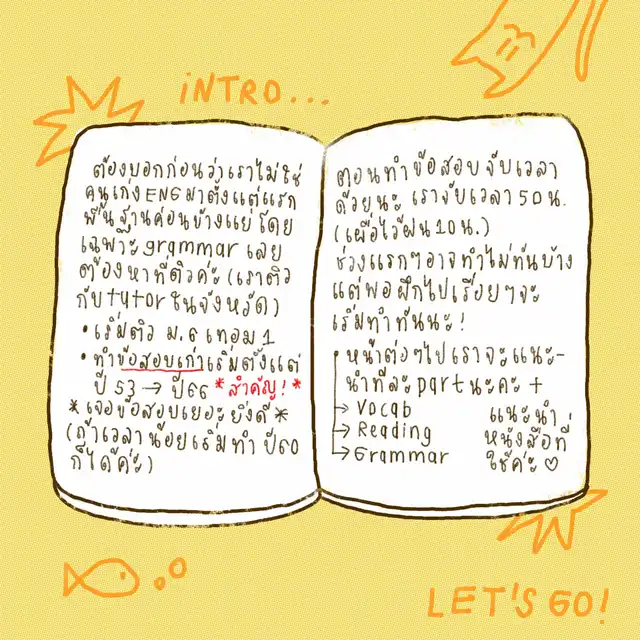 INTRO...
ต้องบอกก่อนว่าเราไม่ใช่
คนเก่ง ENG มาตั้งแต่แรก
พื้นฐานค่อนข้างแย่ โดย
เฉพาะ grammar เลย
ต้องหาที่ติวค่ะ (เราติว
กับ tutor ในจังหวัด)
• เริ่มติว ม.6 เทอม 1
• ทำข้อสอบเก่าเริ่มตั้งแต่
ปี 53 → ปี 66 *สำคัญ!*
*เจอข้อสอบเยอะยิ่งดี*
(ถ้าเวลาน้อยเริ่มทำ ปี 60
ก็ได้ค่ะ)
ตอนทำข้อสอบจับเวลา
ด้วยนะ เราจับเวลา 50 น.
(เผื่อไว้ฝน 10 น.)
ช่วงแรกๆอาจทำไม่ทันบ้าง
แต่พอฝึกไปเรื่อยๆจะ
เริ่มทำทันนะ!
• หน้าต่อๆไปเราจะแนะ-
นำทีละ part นะคะ +
→ Vocab
→ Reading
→ Grammar
แนะนำ
หนังสือที่
ใช้ค่ะ ♡
LET'S GO!